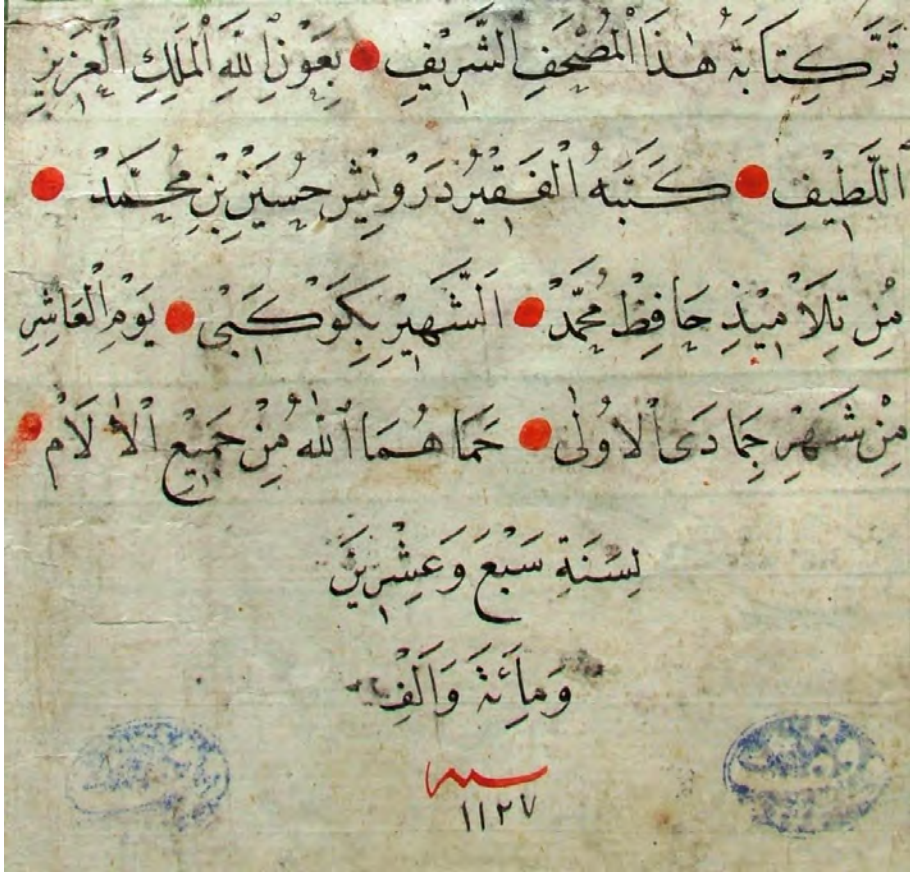 تَمَّ كِتَابَةُ هٰذَا الْمُصْحَفِ الشَّرِيْفِ بِعَوْنِ اللّٰهِ الْمَلِكِ الْعَزِيْزِ
اَللَّطِيْفِ كَتَبَهُ الْفَقِيْرُ دَرْوِيْش حُسَيْن بْنِ مُحَمَّدْ
مِنْ تِلَامِيْذِ حَافِظْ مُحَمَّدْ اَلشَّهِيْرِ بِكَوْكَبِىْ يَوْمِ الْعَاشِرِ
مِنْ شَهْرِ جِمَادَى الْاُولٰى حَمَاهُمَا اللّٰهُ مِنْ جَمِيْعِ الْاٰلَامْ
لِسَنَةِ سَبْعَ وَعِشْرِيْنَ
وَمِأَئَةَ وَاَلْفِ
سنه
١١٢٧